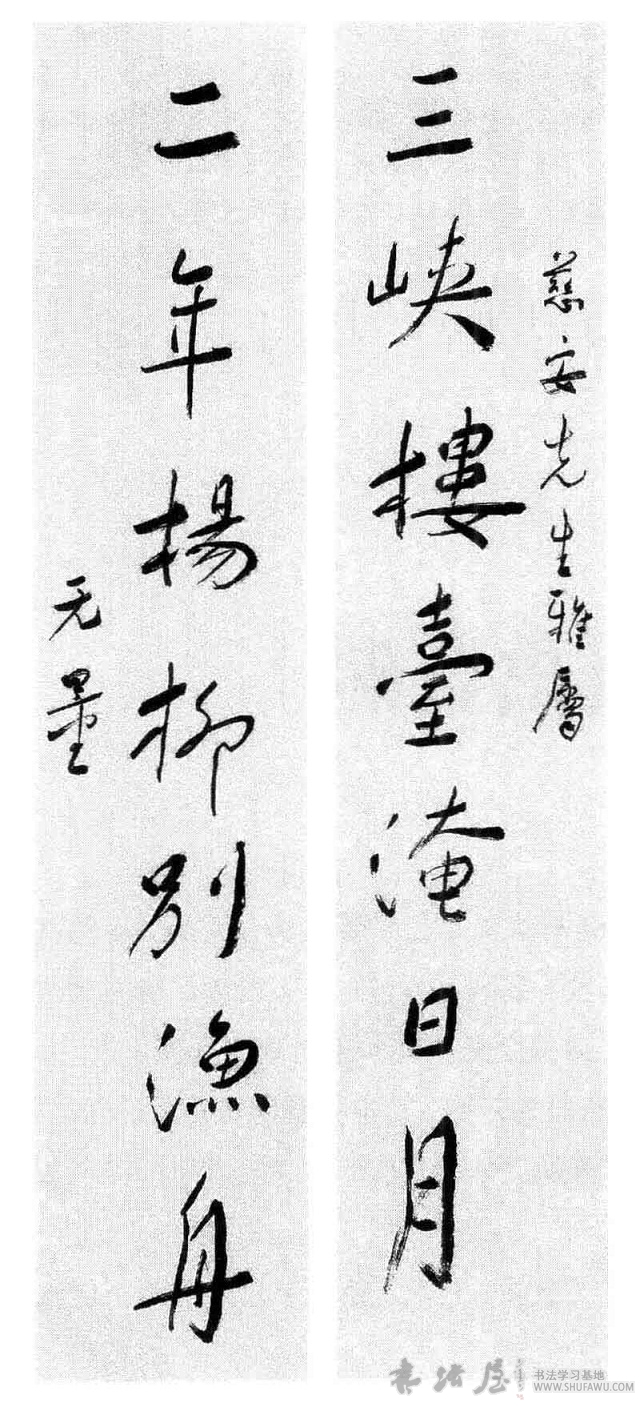 慈安先生雅屬
三峽樓臺淹日月
二年楊柳別漁舟
无量
书法屋
书法学习基地
WWW.SHUFAWU.COM